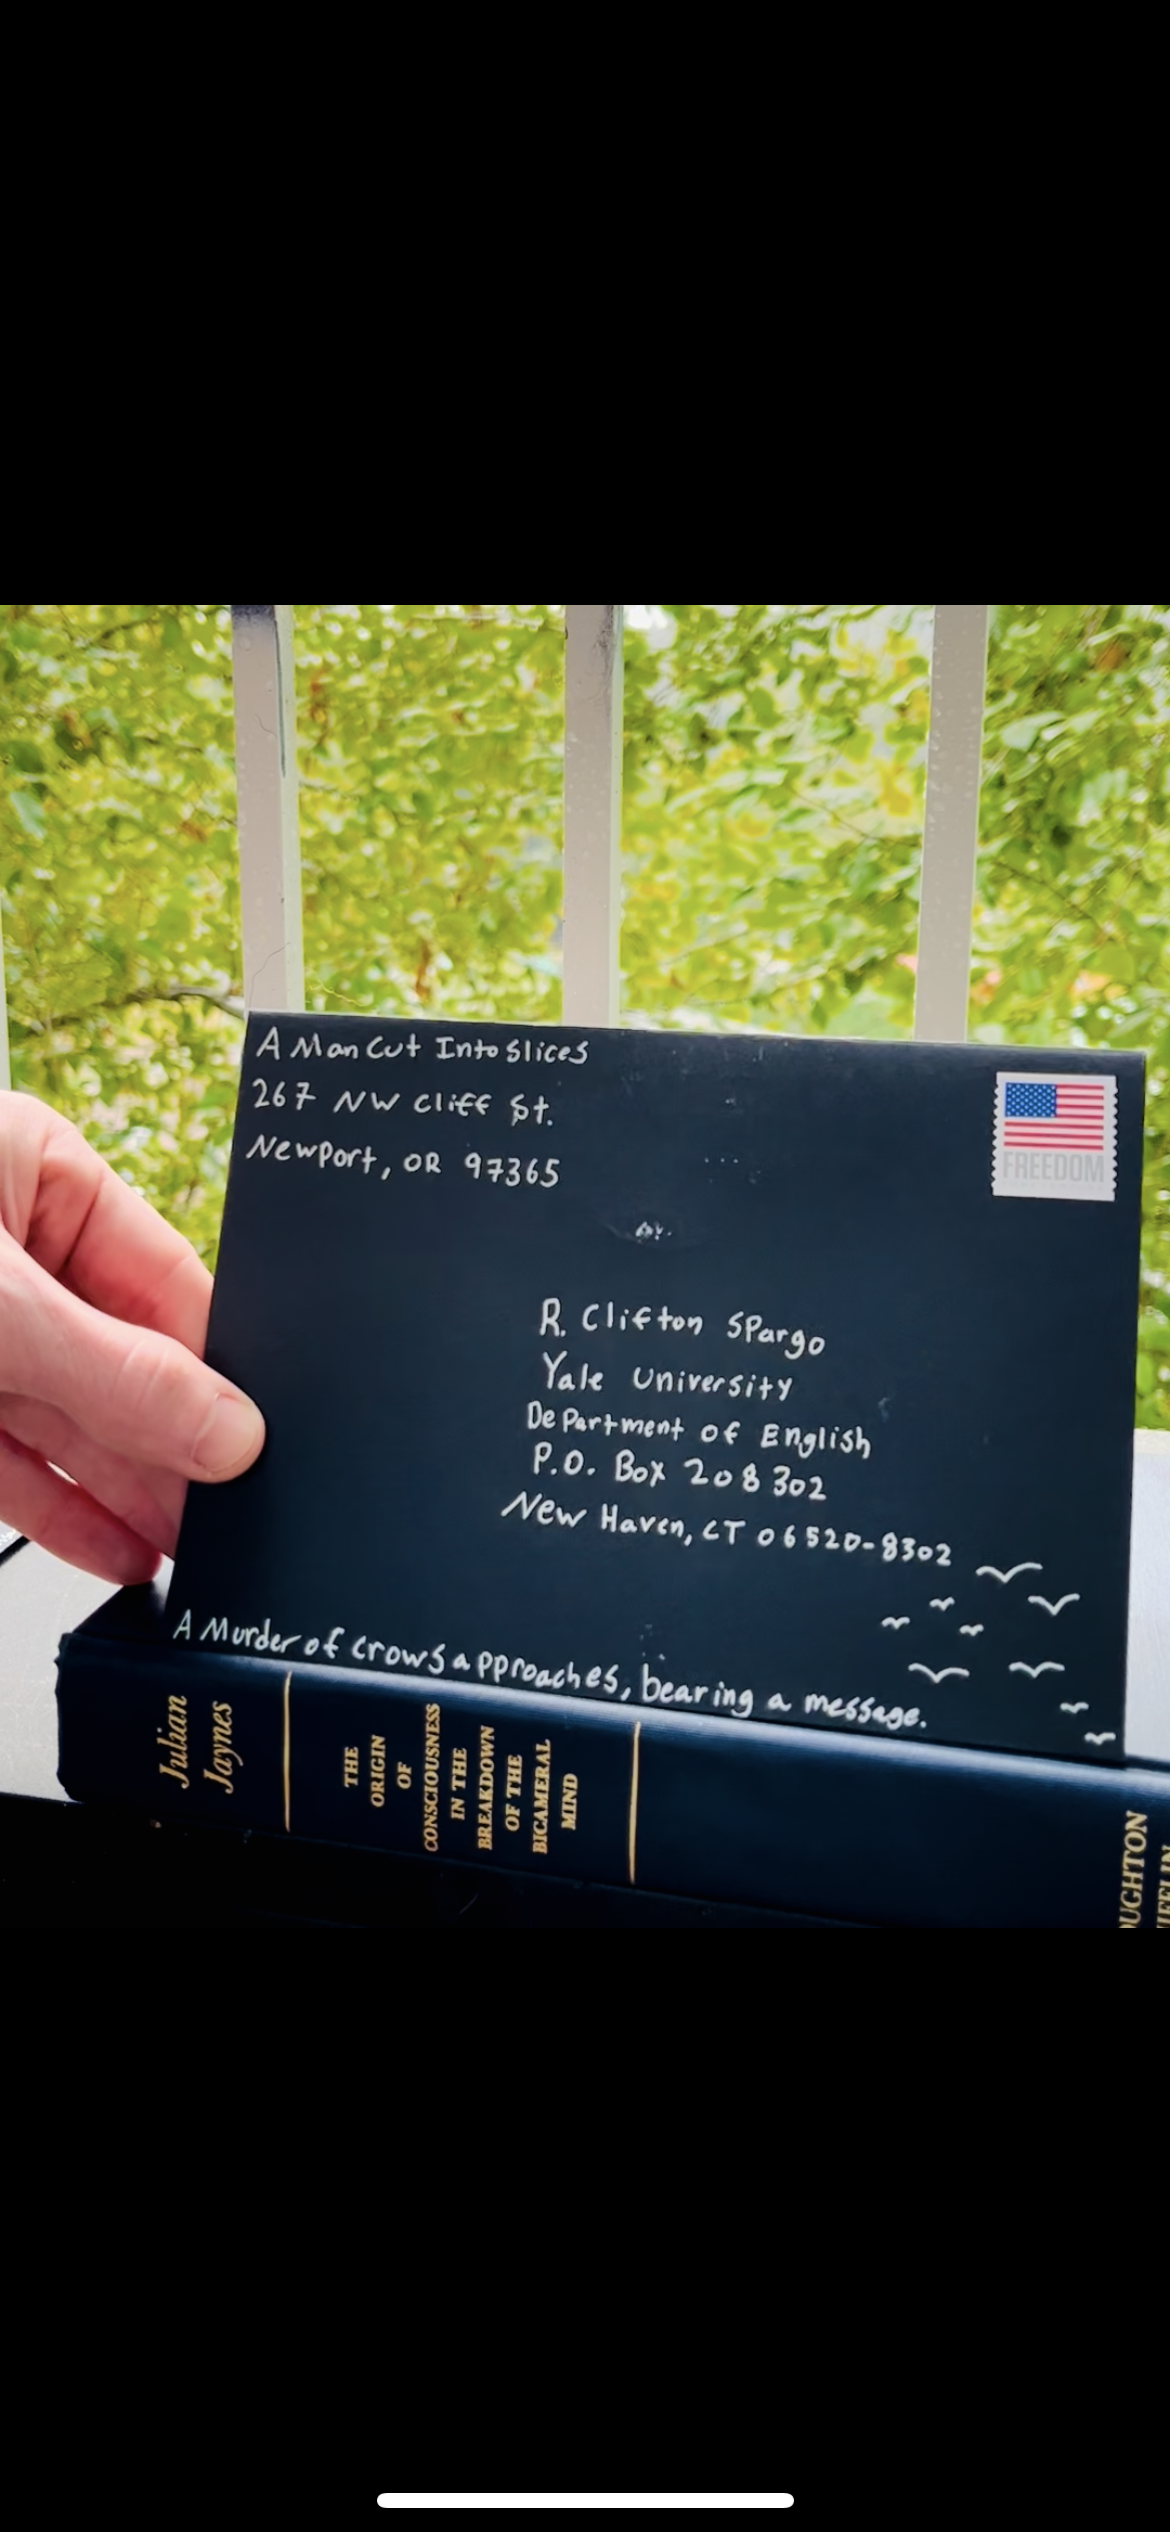 A Man Cut Into Slices
267 NW Cliff St.
Newport, OR 97365
FREEDOM
R. Clifton Spargo
Yale University
Department of English
P.O. Box 208302
New Haven, CT 06520-8302
A Murder of crows approaches, bearing a message.
Julian
Jaynes
THE
ORIGIN
OF
CONSCIOUSNESS
IN THE
BREAKDOWN
OF THE
BICAMERAL
MIND
OUGHTON